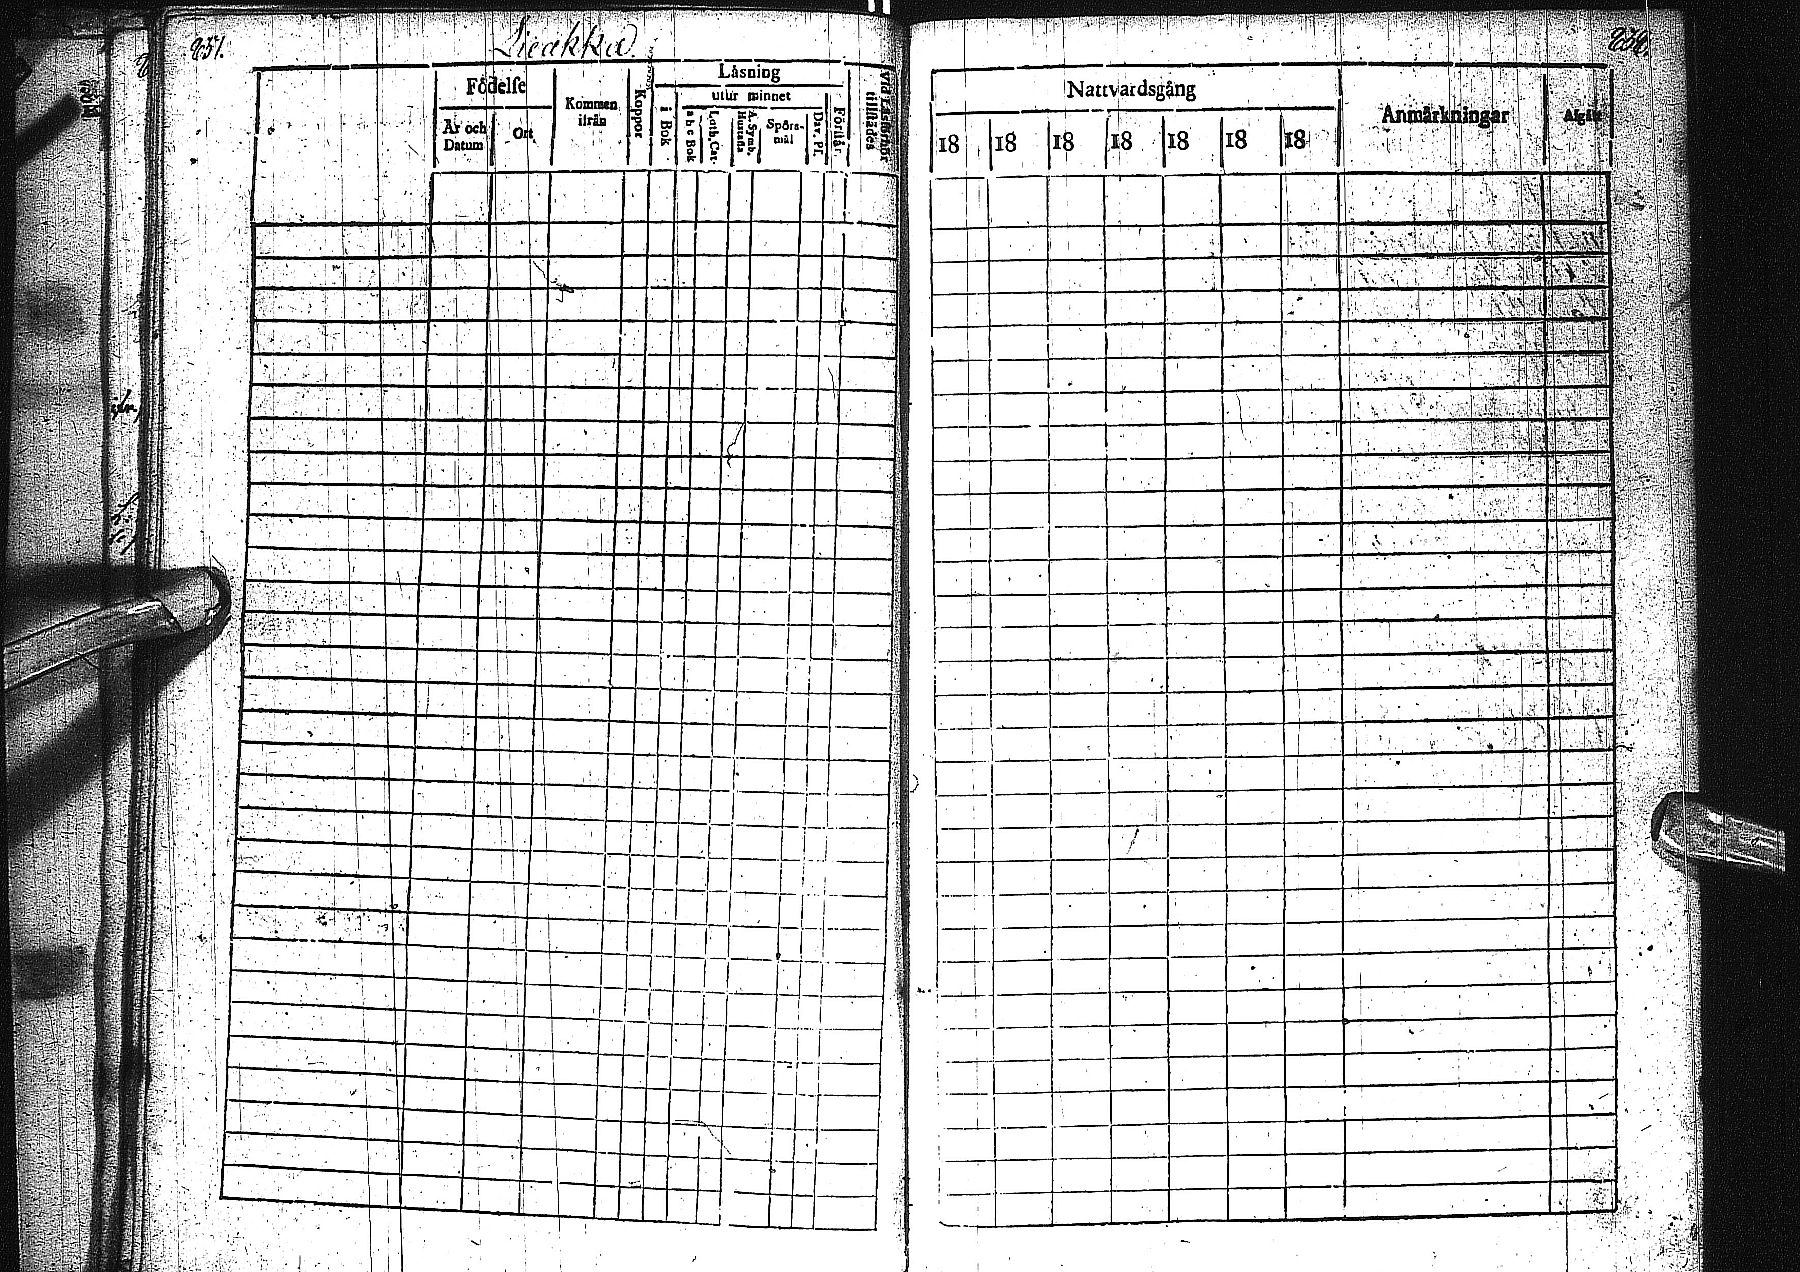 251.
Lieakka
Födelse
År och Datum
Ort
Kommen ifrån
Koppor
Läsning
i Bok
utur minnet
a b c Bok
Luth. Cat.
A. Symb. Hustafla
Spörsmål
Dav. Ps.
Förstår.
Vid Läsförhör tillstädes
252.
Nattvardsgång
18 18 18 18 18 18 18
Anmärkningar
Afgått